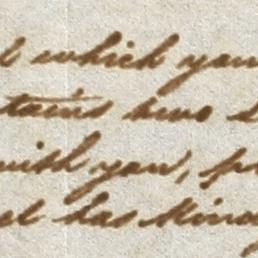 which you
tains two
with you, p
has kind